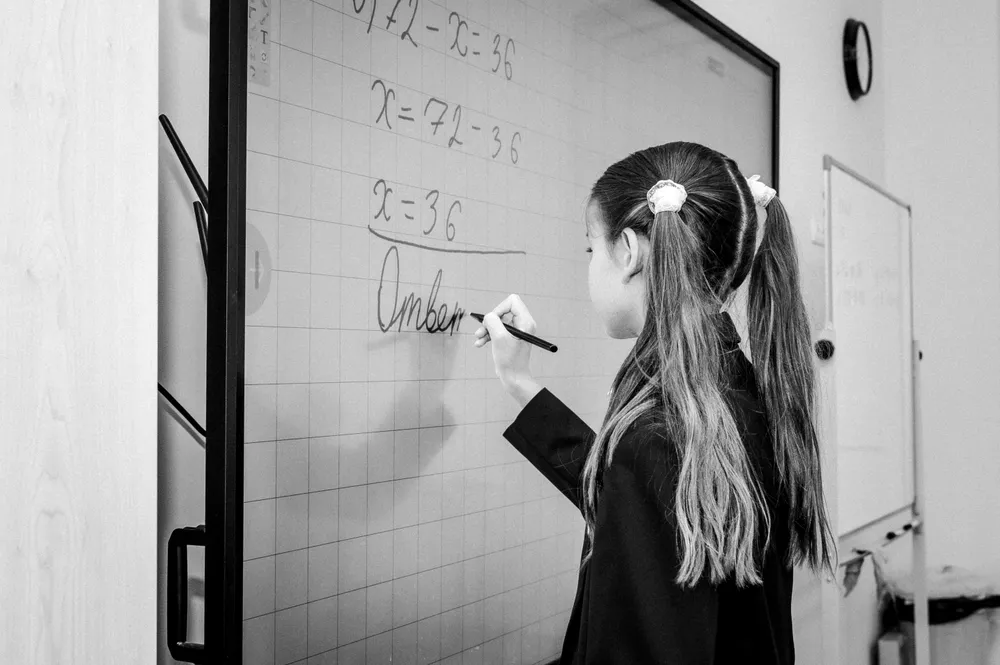 ) 72 - x = 36
x = 72 - 36
x = 36
Ответ